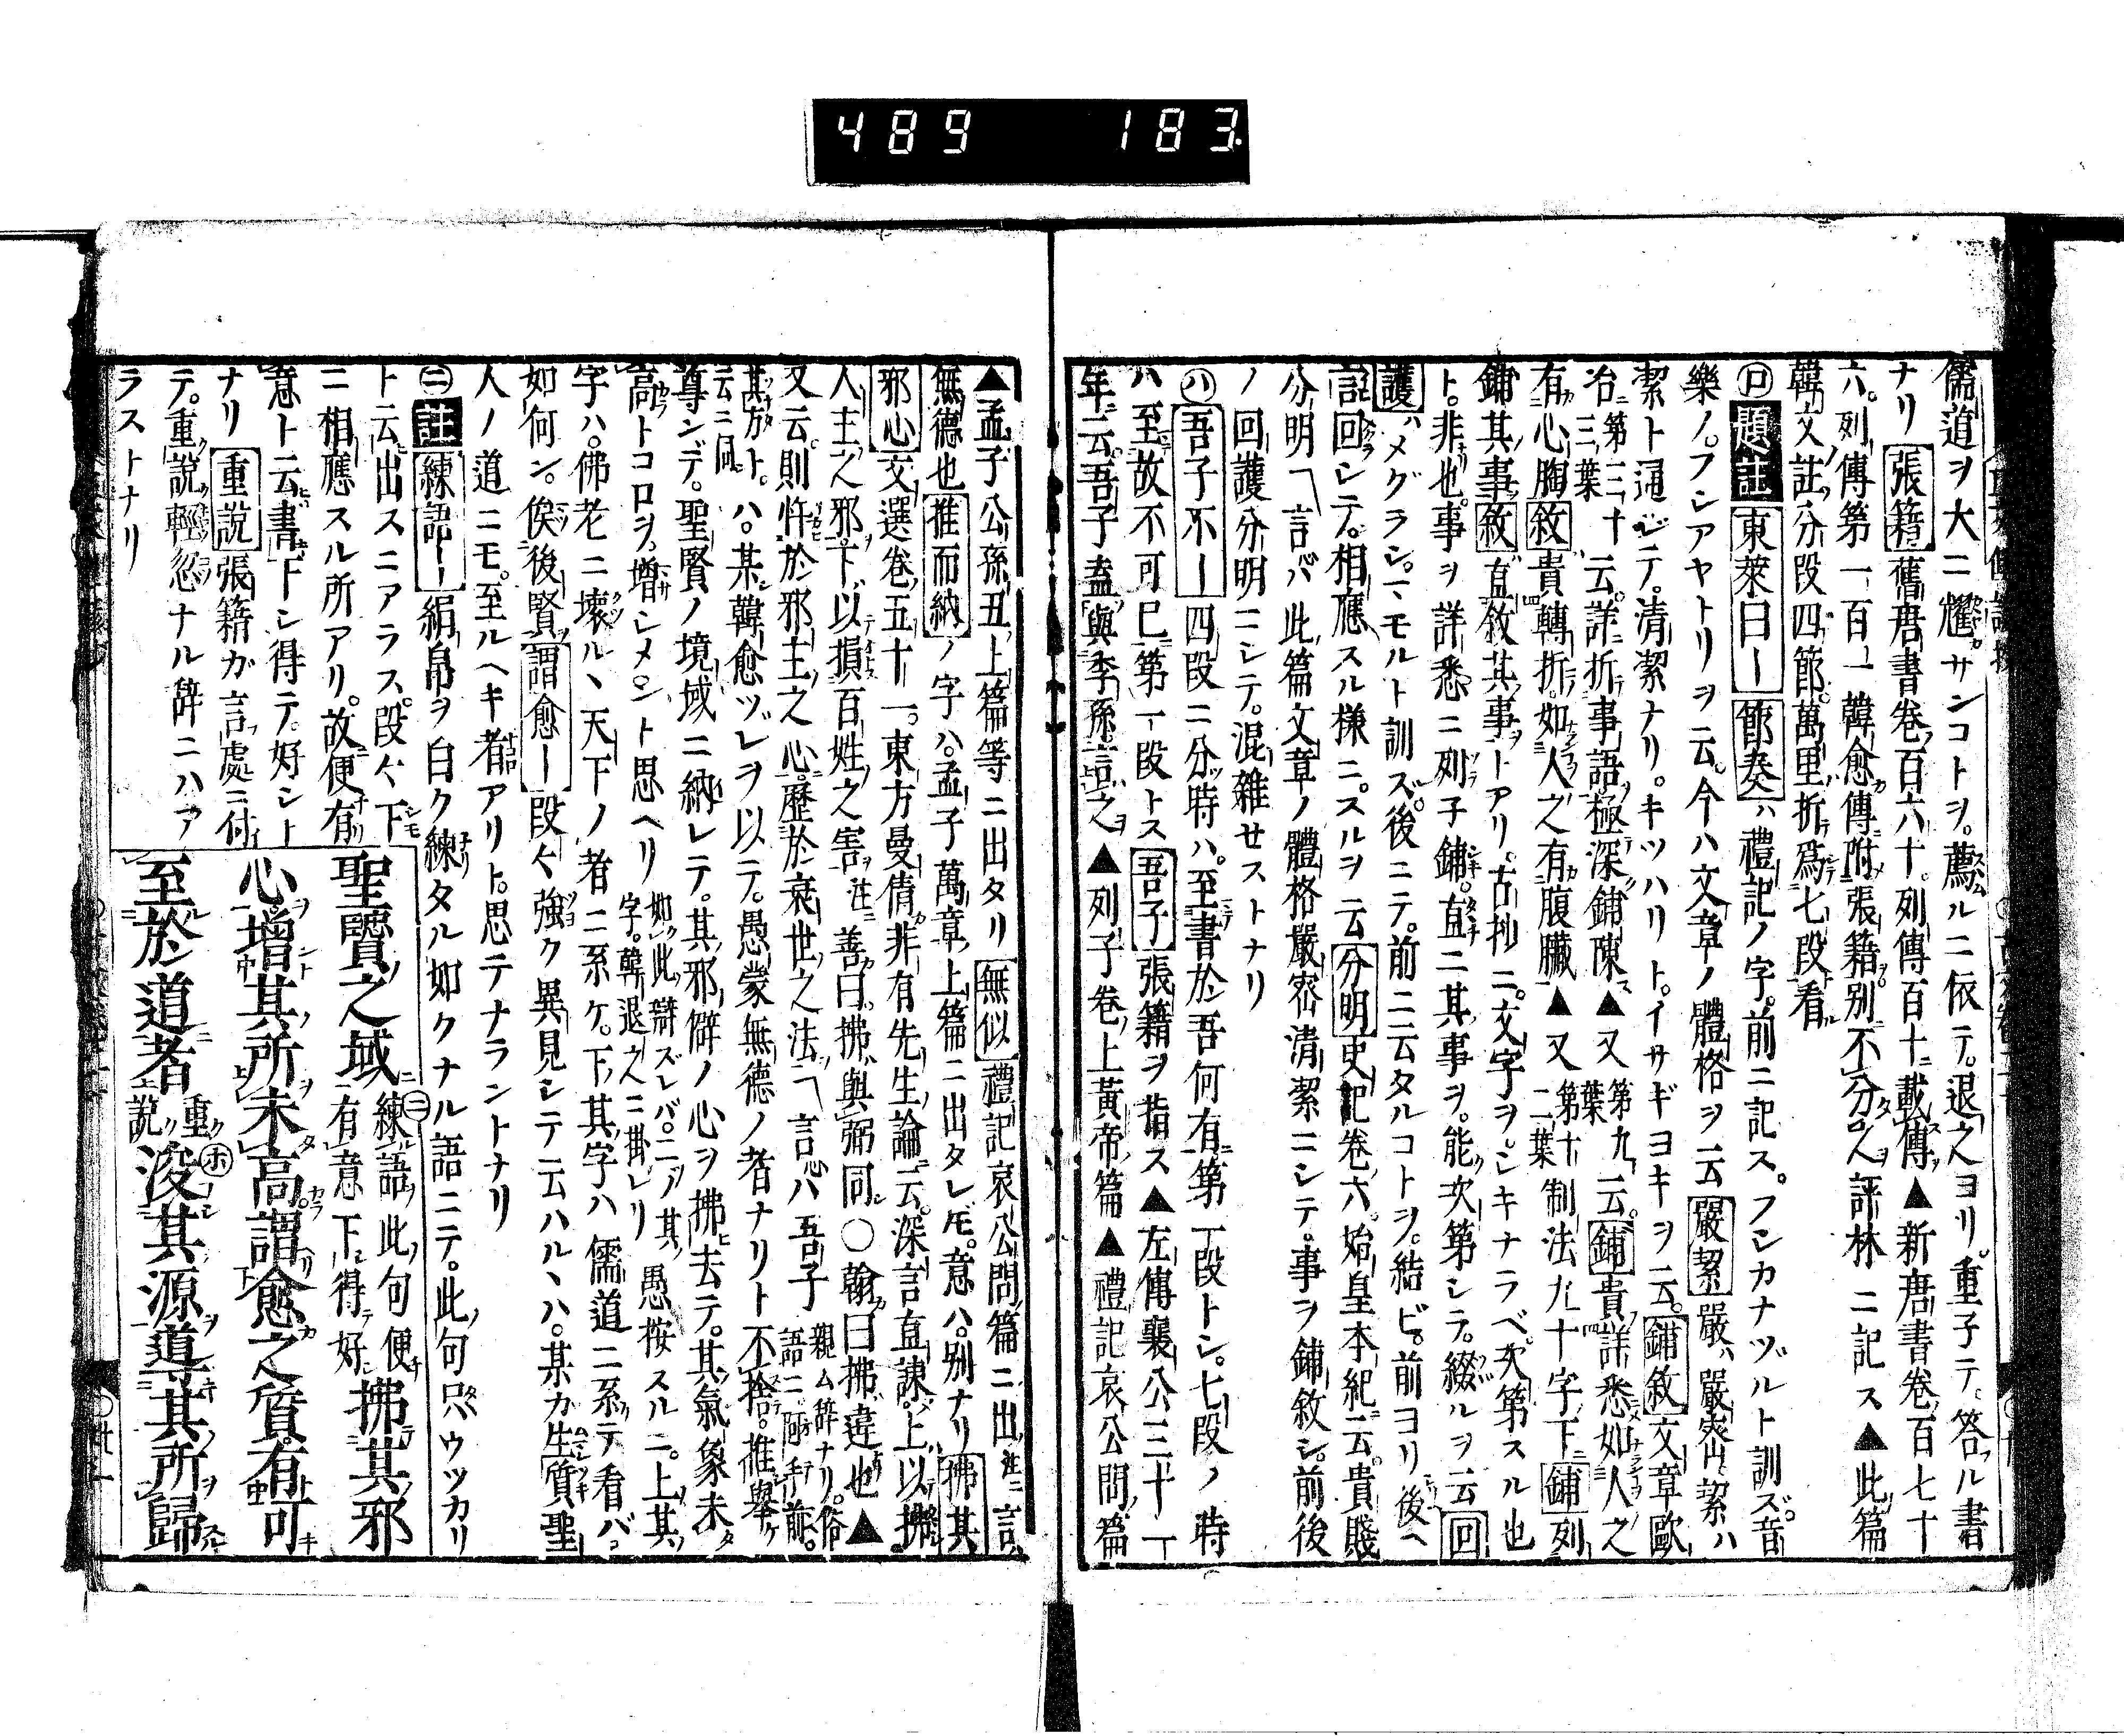 489 183
儒道ヲ大ニ耀サンコトヲ。薦ルニ依テ。退之ヨリ。重子テ。答ル書
ナリ張籍舊唐書卷百六十。列傳百十ニ載傳▲新唐書卷百七十
六。列傳第一百一韓愈傳附張籍別不分人評林ニ記ス▲此篇
韓文註分段四節。萬里折爲七段看
㋺題註東萊曰ー節奏ハ禮記ノ字。前ニ記ス。フシカナヅルト訓ズ。音
樂ノ。フシアヤトリヲ云。今ハ文章ノ體格ヲ云嚴絜嚴ハ嚴密絜ハ
潔ト通ジテ。清潔ナリ。キツハリト。イサギヨキヲ云。鋪敘文章歐
冶第三十三葉云。詳折事語極深鋪陳▲又第九葉云。鋪貴詳悉如人之
有心胸敘貴轉折。如人之有腹臟▲又第十二葉制法九十字下鋪列
鋪其事敘直敘其事トアリ。古抄ニ。文字ヲ。シキナラベ。次第スル也
ト。非也。事ヲ詳悉ニ列子鋪。直ニ其事ヲ。能次第シテ。綴ルヲ云回
護ハメグラシ。マモルト訓ズ。後ニテ。前ニ云タルコトヲ。結ビ。前ヨリ後ヘ
言回シテ。相應スル様ニ。スルヲ云分明史記卷六。始皇本紀云。貴賤
分明言バ此篇文章ノ體格嚴密清潔ニシテ。事ヲ鋪敘シ。前後
ノ回護分明ニシテ。混雜セストナリ
㋩吾子不ー四段ニ分時ハ。至書於吾何有第一段トシ。七段ノ時
ハ至故不可已第一段トス吾子張籍ヲ指ス▲左傳襄公三十一
年云吾子盍與季孫言之▲列子卷上黃帝篇▲禮記哀公問篇
▲孟子公孫丑上篇等ニ出タリ無似禮記哀公問篇ニ出注ニ言
無德也推而納ノ字ハ。孟子萬章上篇ニ出タレ𪜈。意ハ。別ナリ拂其
邪心文選卷五十一。東方曼倩非有先生論云。深言直諫。上以拂
人主之邪。下以損百姓之害注善曰。拂與弼同○翰曰拂違也▲
又云。則忤於邪主之心。歷於衰世之法言心ハ吾子親ム辞ナリ。俗語ニ。
其方ト云ニ同ハ。某韓愈ヅレヲ以テ。愚蒙無德ノ者ナリト不捨。推舉
尊ンデ。聖賢ノ境域ニ納レテ。其邪僻ノ心ヲ拂去テ。其氣象未
高トコロヲ。增シメント思ヘリ如此辭ズレバ。ニア其字。韓退之ニ掛レリ愚按スルニ。上其
字ハ。佛老ニ壞ル丶天下ノ者ニ系ケ。下其字ハ儒道ニ系テ看バ。
如何ン。俟後賢謂愈ー段々強ク異見シテ云ハル丶ハ。某カ生質聖
人ノ道ニモ。至ルヘキ者アリト。思テナラントナリ
㊁註練語ー絹帛ヲ白ク練タル如クナル語ニテ。此句只ウツカリ
ト云出スニアラス。段々下
ニ相應スル所アリ。故便有
意ト云書下シ得テ。好シト
ナリ重說張籍ガ言處ニ付
テ。重說輕忽ナル辞ニハア
ラストナリ
聖賢之域㊁練語此句便有意下得好拂其邪
心增其所未高謂愈之質有可
至於道者重說㋭浚其源導其所歸